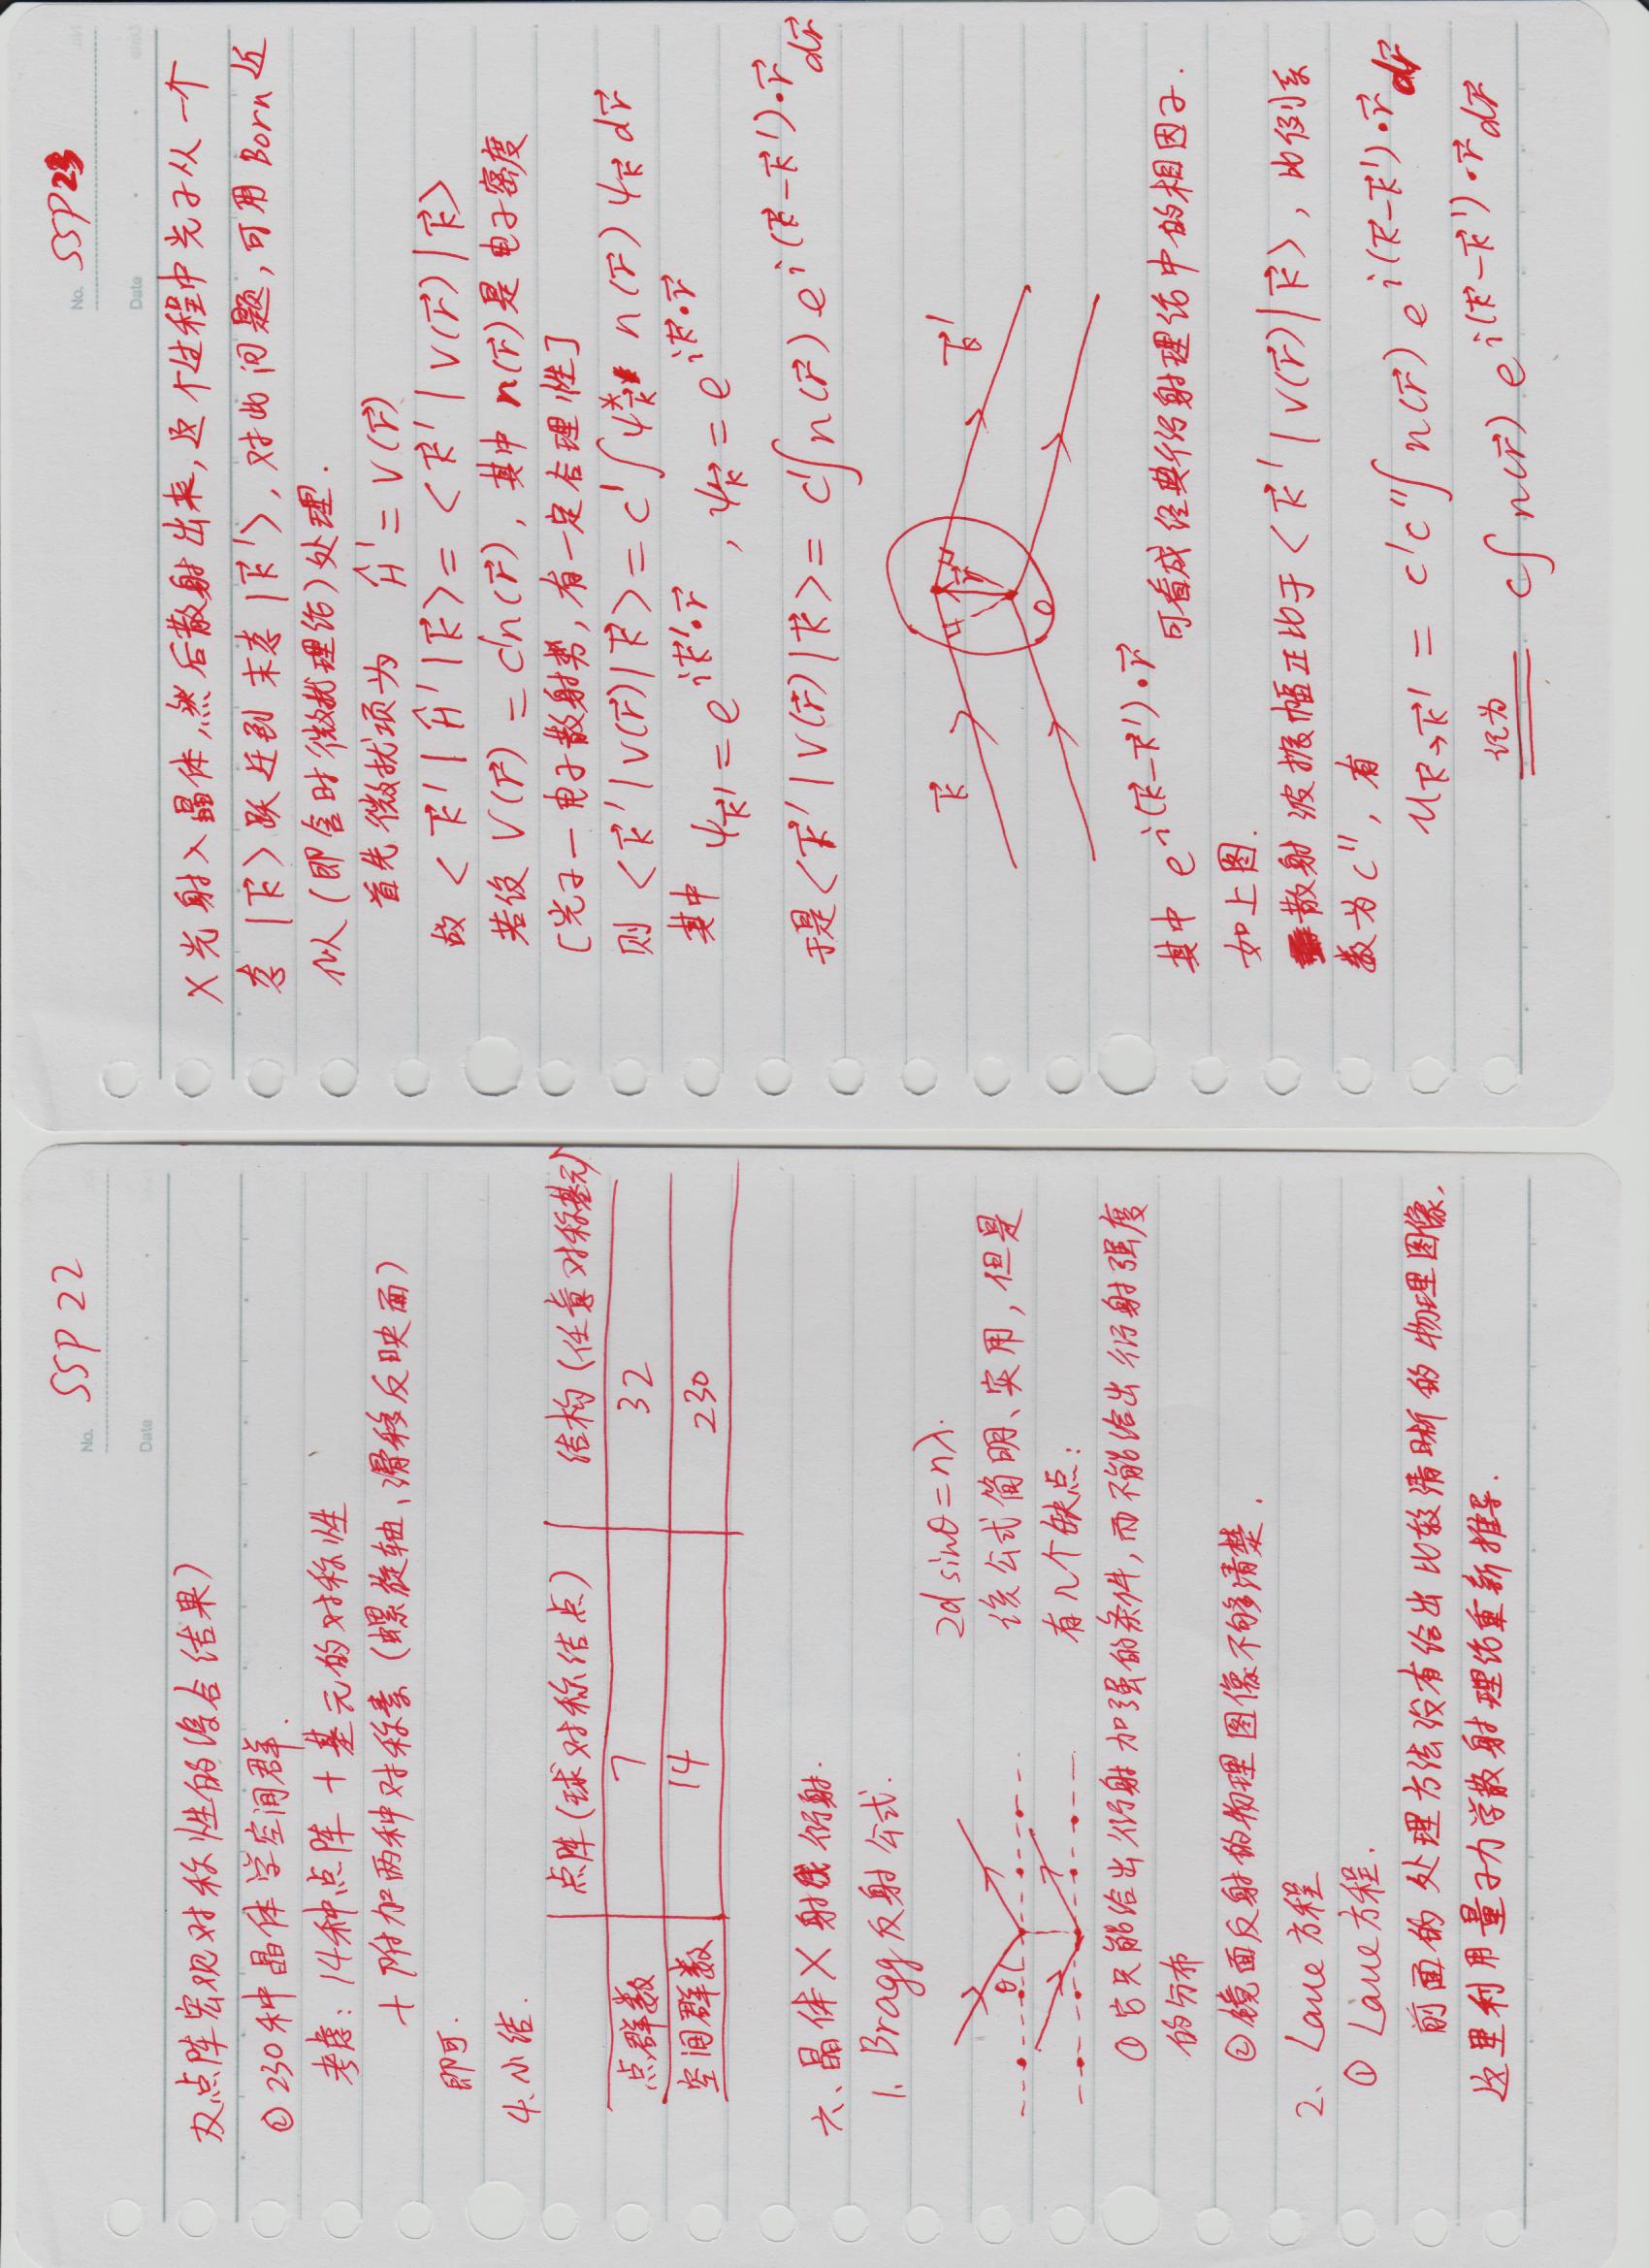 No. SSP 22
Date
及点阵宏观对称性的综合结果)
② 230种晶体学空间群.
考虑: 14种点阵 + 基元的对称性
+ 附加两种对称素 (螺旋轴、滑移反映面)
即可.
4. 小结.
点阵(球对称结点) 结构(任意对称基元)
点群数 7 32
空间群数 14 230
六、晶体X射线衍射.
1. Bragg反射公式.
2d sinθ = nλ.
该公式简明、实用, 但是
有几个缺点:
θ
① 它只能给出衍射加强的条件, 而不能给出衍射强度
的分布
② 镜面反射的物理图像不够清楚.
2. Laue 方程
① Laue 方程.
前面的处理方法没有给出比较清晰的物理图像,
这里利用量子力学散射理论重新推导.
No. SSP23
Date
X光射入晶体, 然后散射出来, 这个过程中光子从一个
态 |k⃗> 跃迁到末态 |k⃗'>, 对此问题, 可用Born近
似 (即含时微扰理论) 处理.
首先微扰项为 Ĥ' = V(r⃗)
故 <k⃗'|Ĥ'|k⃗> = <k⃗'|V(r⃗)|k⃗>
若设 V(r⃗) = c'n(r⃗), 其中 n(r⃗)是电子密度
[光子—电子散射势, 有一定合理性]
则 <k⃗'|V(r⃗)|k⃗> = c'∫ψ*k⃗' n(r⃗) ψk⃗ dr⃗
其中 ψk⃗' = e^{ik⃗'·r⃗}, ψk⃗ = e^{ik⃗·r⃗}
于是<k⃗'|V(r⃗)|k⃗> = c'∫n(r⃗) e^{i(k⃗-k⃗')·r⃗} dr⃗
k⃗ r⃗ k⃗'
O
其中 e^{i(k⃗-k⃗')·r⃗} 可看成经典衍射理论中的相因子.
如上图.
散射波振幅正比于 <k⃗'|V(r⃗)|k⃗>, 比例系
数为 c'', 有
u k⃗→k⃗' = c'c''∫n(r⃗) e^{i(k⃗-k⃗')·r⃗} dr⃗
记为 c∫n(r⃗) e^{i(k⃗-k⃗')·r⃗} dr⃗